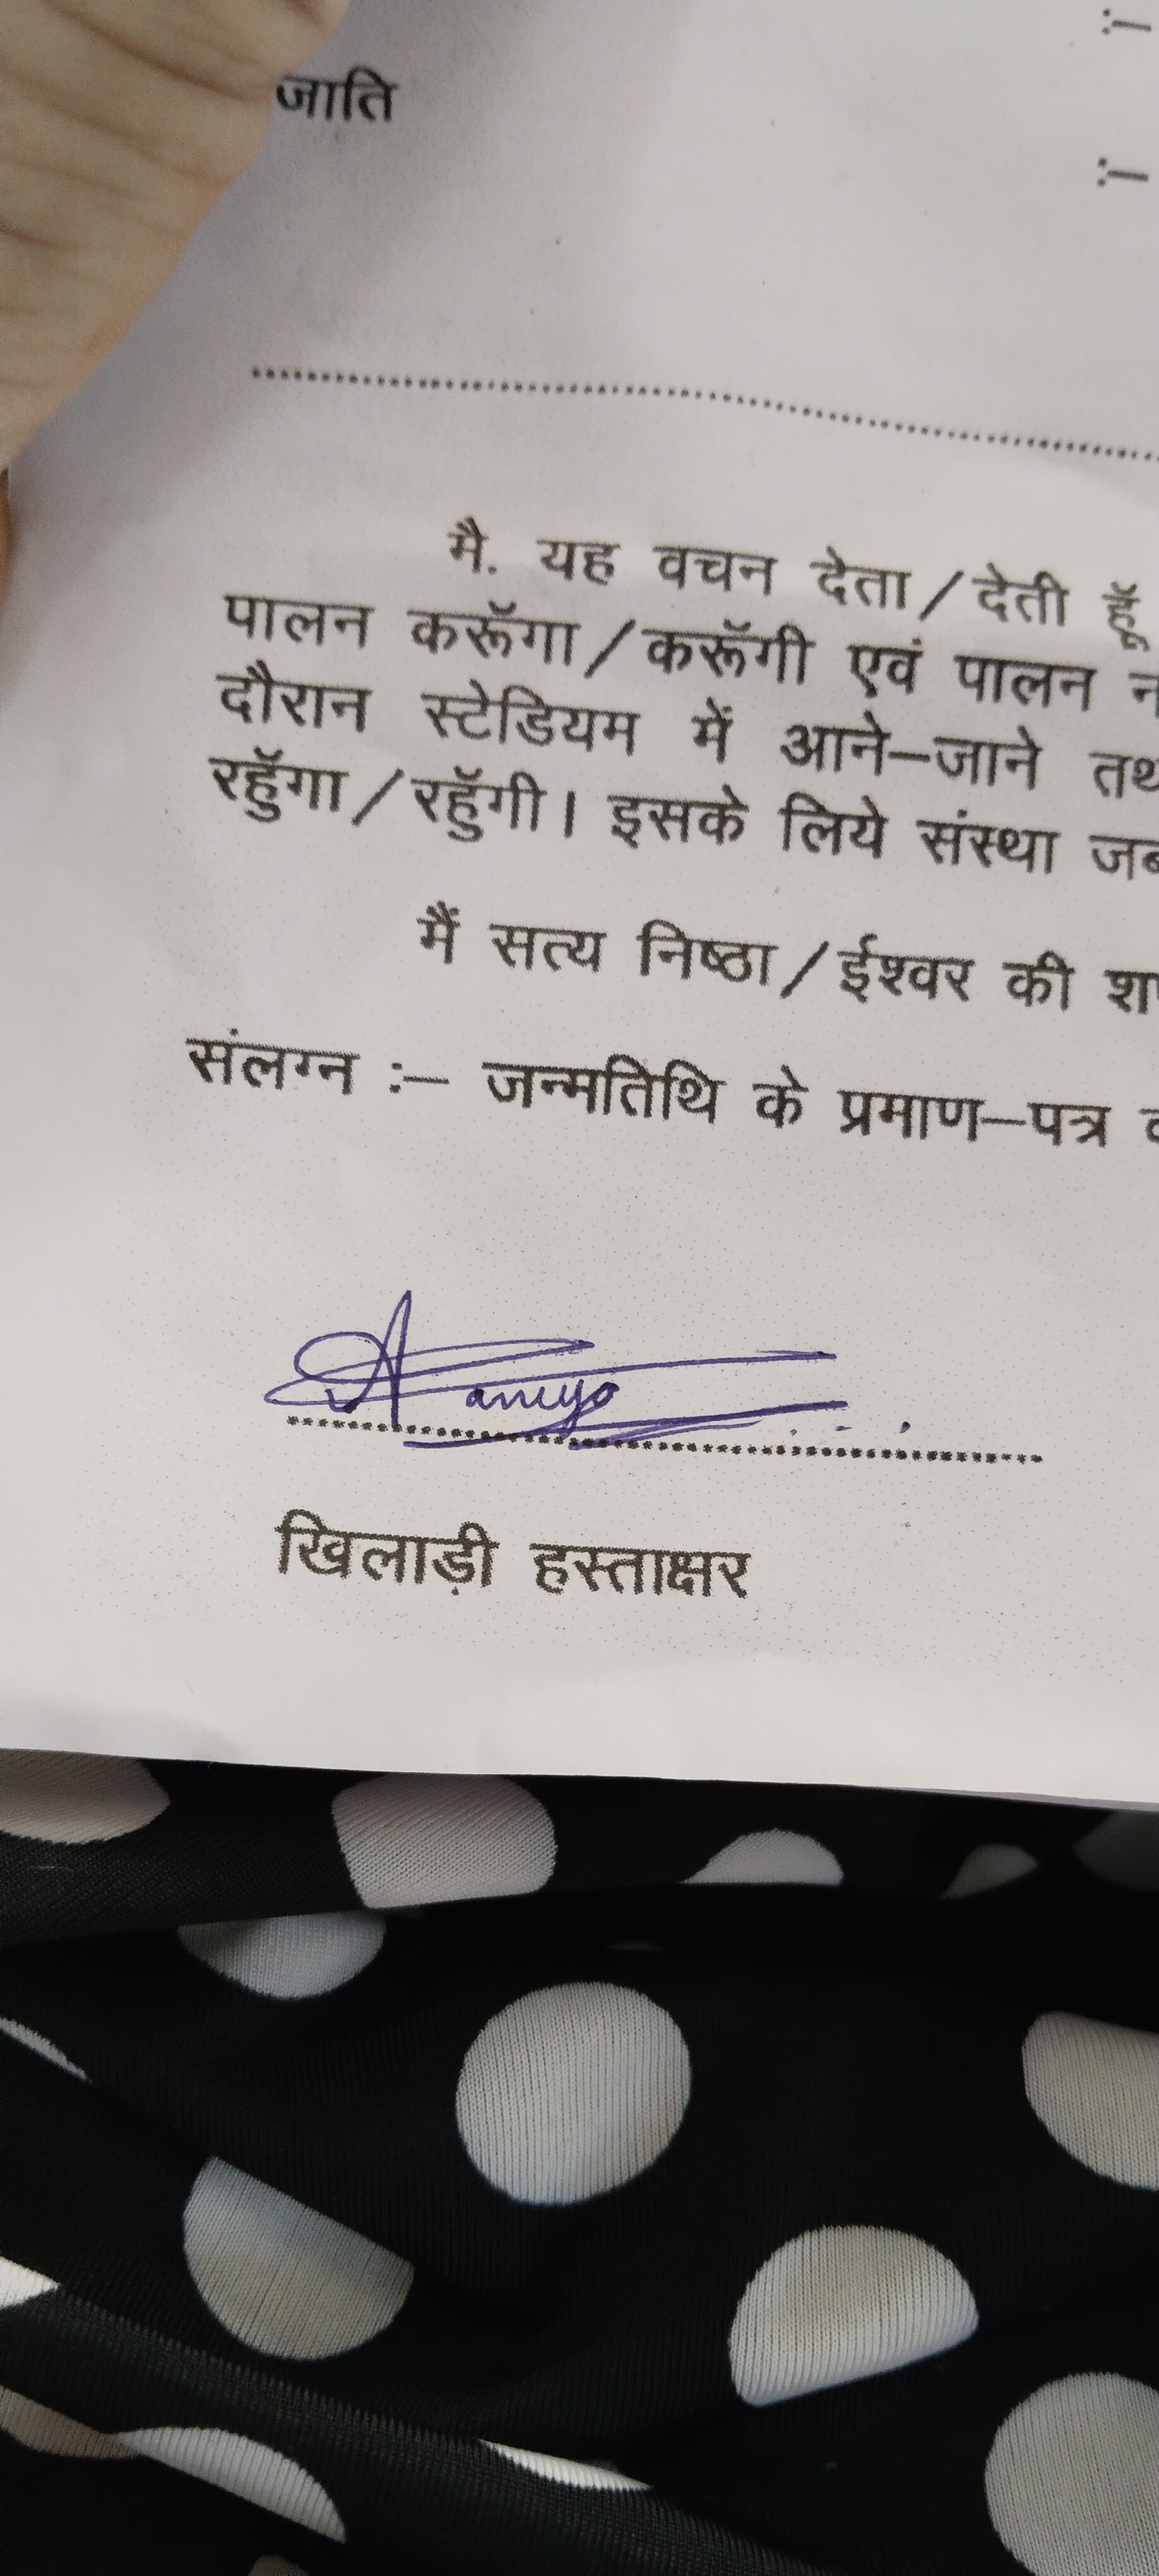 :–
जाति
:–
मै. यह वचन देता/देती हूॅं
पालन करूॅगा/करूॅगी एवं पालन न
दौरान स्टेडियम में आने–जाने तथ
रहुॅगा/रहुॅगी। इसके लिये संस्था जब
मैं सत्य निष्ठा/ईश्वर की शप
संलग्न :– जन्मतिथि के प्रमाण–पत्र
खिलाड़ी हस्ताक्षर